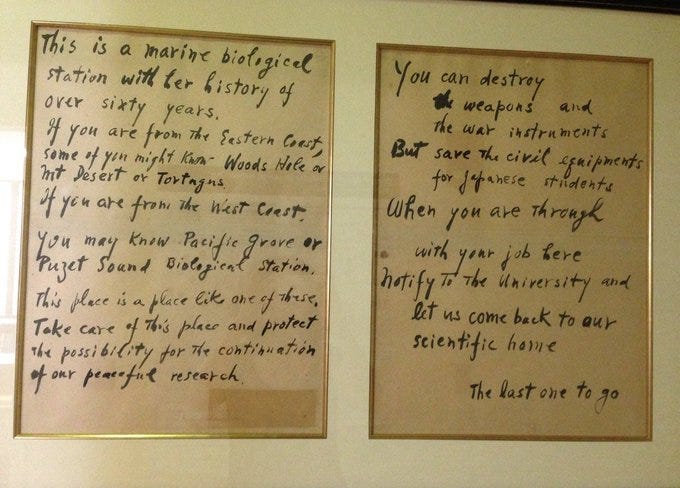 This is a marine biological
station with her history of
over sixty years.
If you are from the Eastern Coast,
some of you might know Woods Hole or
Mt Desert or Tortugas.
If you are from the West Coast,
You may know Pacific Grove or
Puzet Sound Biological Station.
This place is a place like one of these.
Take care of this place and protect
the possibility for the continuation
of our peaceful research.
You can destroy
the weapons and
the war instruments
But save the civil equipments
for Japanese students
When you are through
with your job here
Notify to the University and
let us come back to our
scientific home
The last one to go